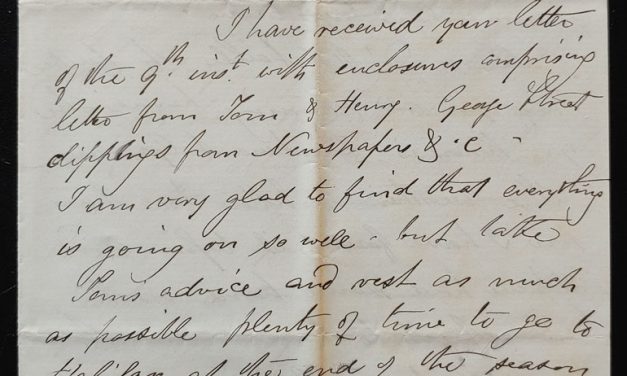 I have received your letter
of the 9th inst. with enclosures comprising
letter from Tom & Henry. George Street
clippings from Newspapers & c -
I am very glad to find that everything
is going on so well - but take
Tom's advice and rest as much
as possible plenty of time to go to
at the end of the season